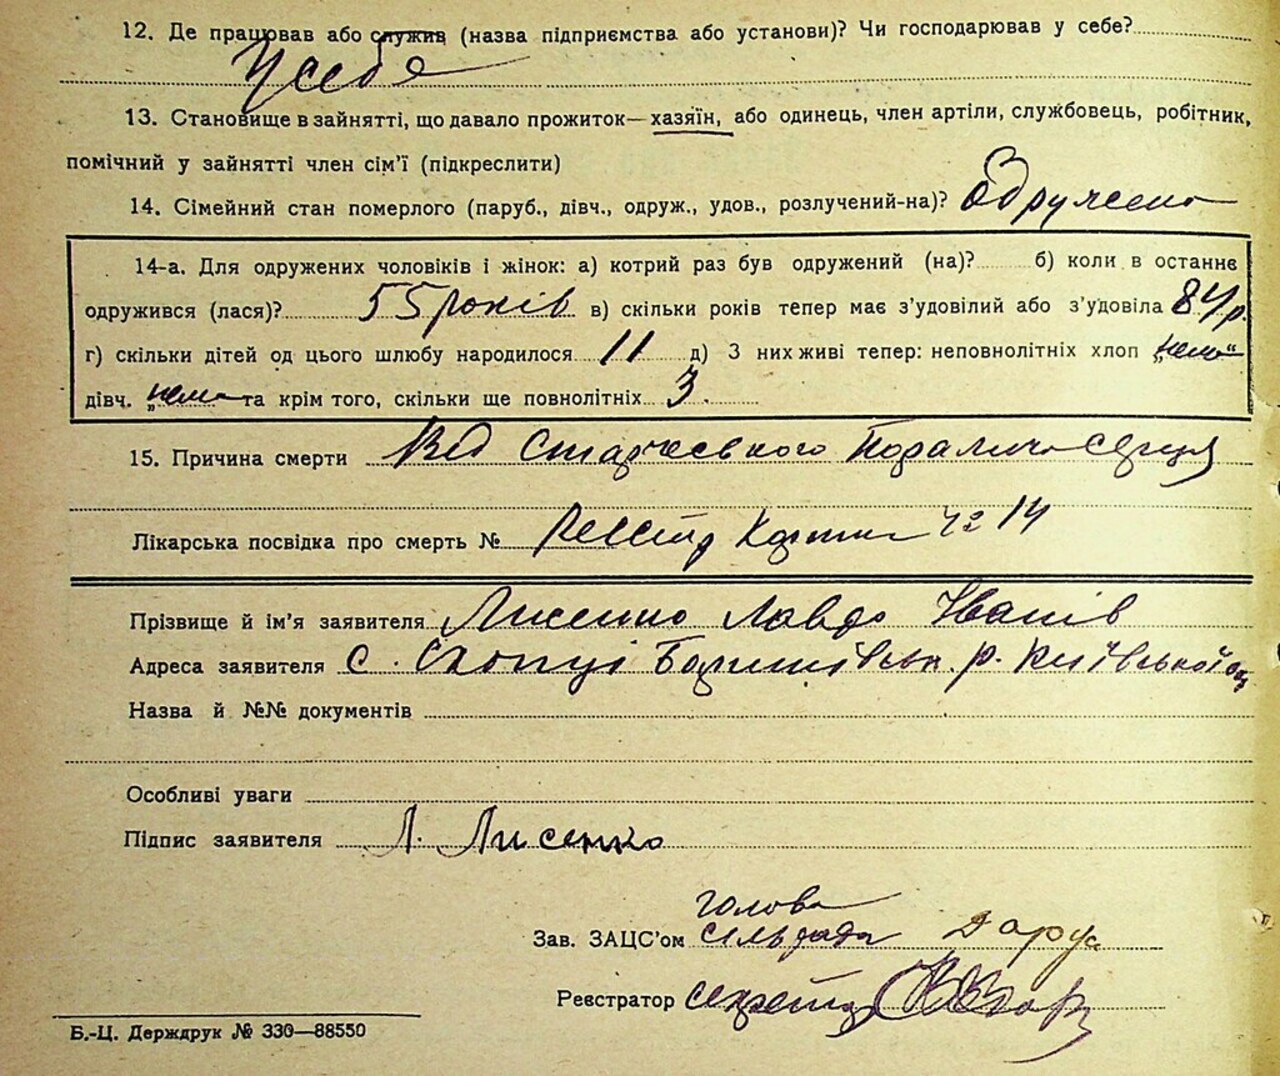 12. Де працював або служив (назва підприємства або установи)? Чи господарював у себе?
У себе
13. Становище в зайнятті, що давало прожиток—хазяїн, або одинець, член артіли, службовець, робітник,
помічний у зайнятті член сім'ї (підкреслити)
14. Сімейний стан померлого (паруб., дівч., одруж., удов., розлучений-на)? Одружена
14-а. Для одружених чоловіків і жінок: а) котрий раз був одружений (на)? б) коли в останнє
одружився (лася)? 55 років в) скільки років тепер має з'удовілий або з'удовіла 84 р.
г) скільки дітей од цього шлюбу народилося 11 д) З них живі тепер: неповнолітніх хлоп „нема“
дівч. „нема та крім того, скільки ще повнолітніх 3.
15. Причина смерти Від Старчевського Паралича Серця
Лікарська посвідка про смерть № Реєстр Картка Ч 14
Прізвище й ім'я заявителя Лисенко Лавдо Іванів
Адреса заявителя с. Скопці Баришівськ. р. Київської об
Назва й №№ документів
Особливі уваги
Підпис заявителя Л. Лисенко
голова
Зав. ЗАЦС'ом сільради
Реєстратор секретар
Б.-Ц. Держдрук № 330—88550